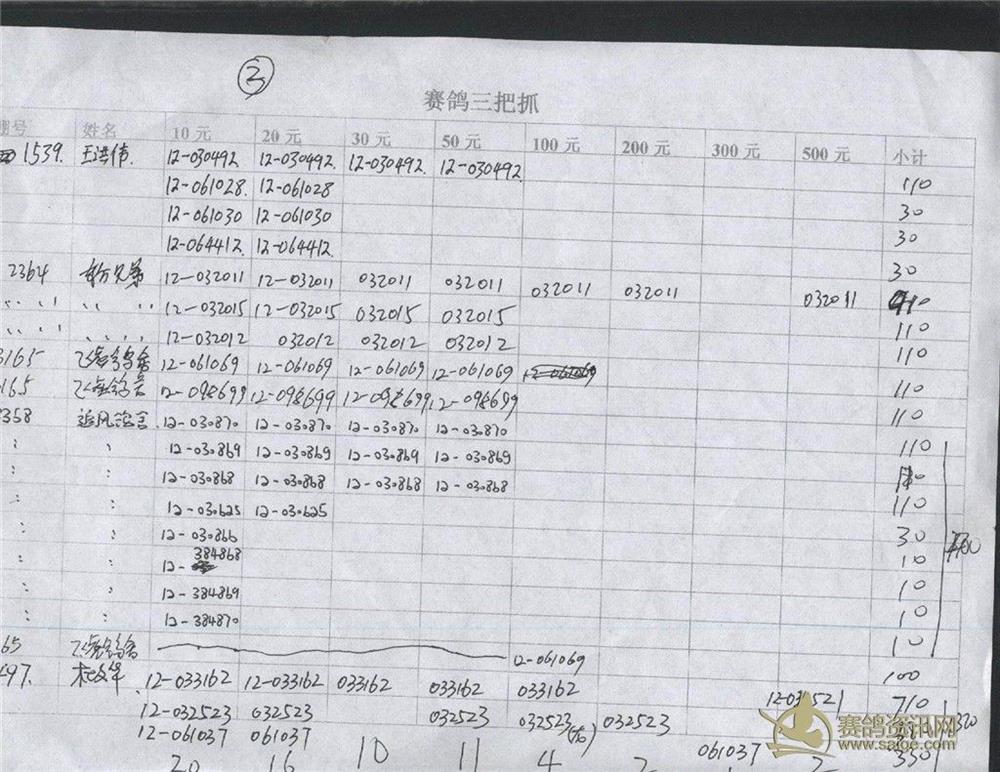 3
赛鸽三把抓
棚号 姓名 10元 20元 30元 50元 100元 200元 300元 500元 小计
1539. 王洪伟 12-030492 12-030492 12-030492 12-030492 110
12-061028 12-061028 30
12-061030 12-061030 30
12-064412 12-064412 30
2364 兄弟 12-032011 12-032011 032011 032011 032011 032011 032011
12-032015 12-032015 032015 032015 110
12-032012 032012 032012 032012 110
3165 12-061069 12-061069 12-061069 12-061069 110
165 12-098699 12-098699 12-098699 12-098699 110
358 追风 12-030870 12-030870 12-030870 12-030870 110
12-030869 12-030869 12-030869 12-030869
12-030868 12-030868 12-030868 12-030868 110
12-030625 12-030625 30
12-030866 10
12-384868 10
12-384869 10
12-384870 10
65 12-061069 100
497. 12-033162 12-033162 033162 033162 033162 12-032521 710
12-032523 032523 032523 032523 032523
12-061037 061037 061037 330
20 16 10 11 4 2
赛鸽资讯网
www.saige.com